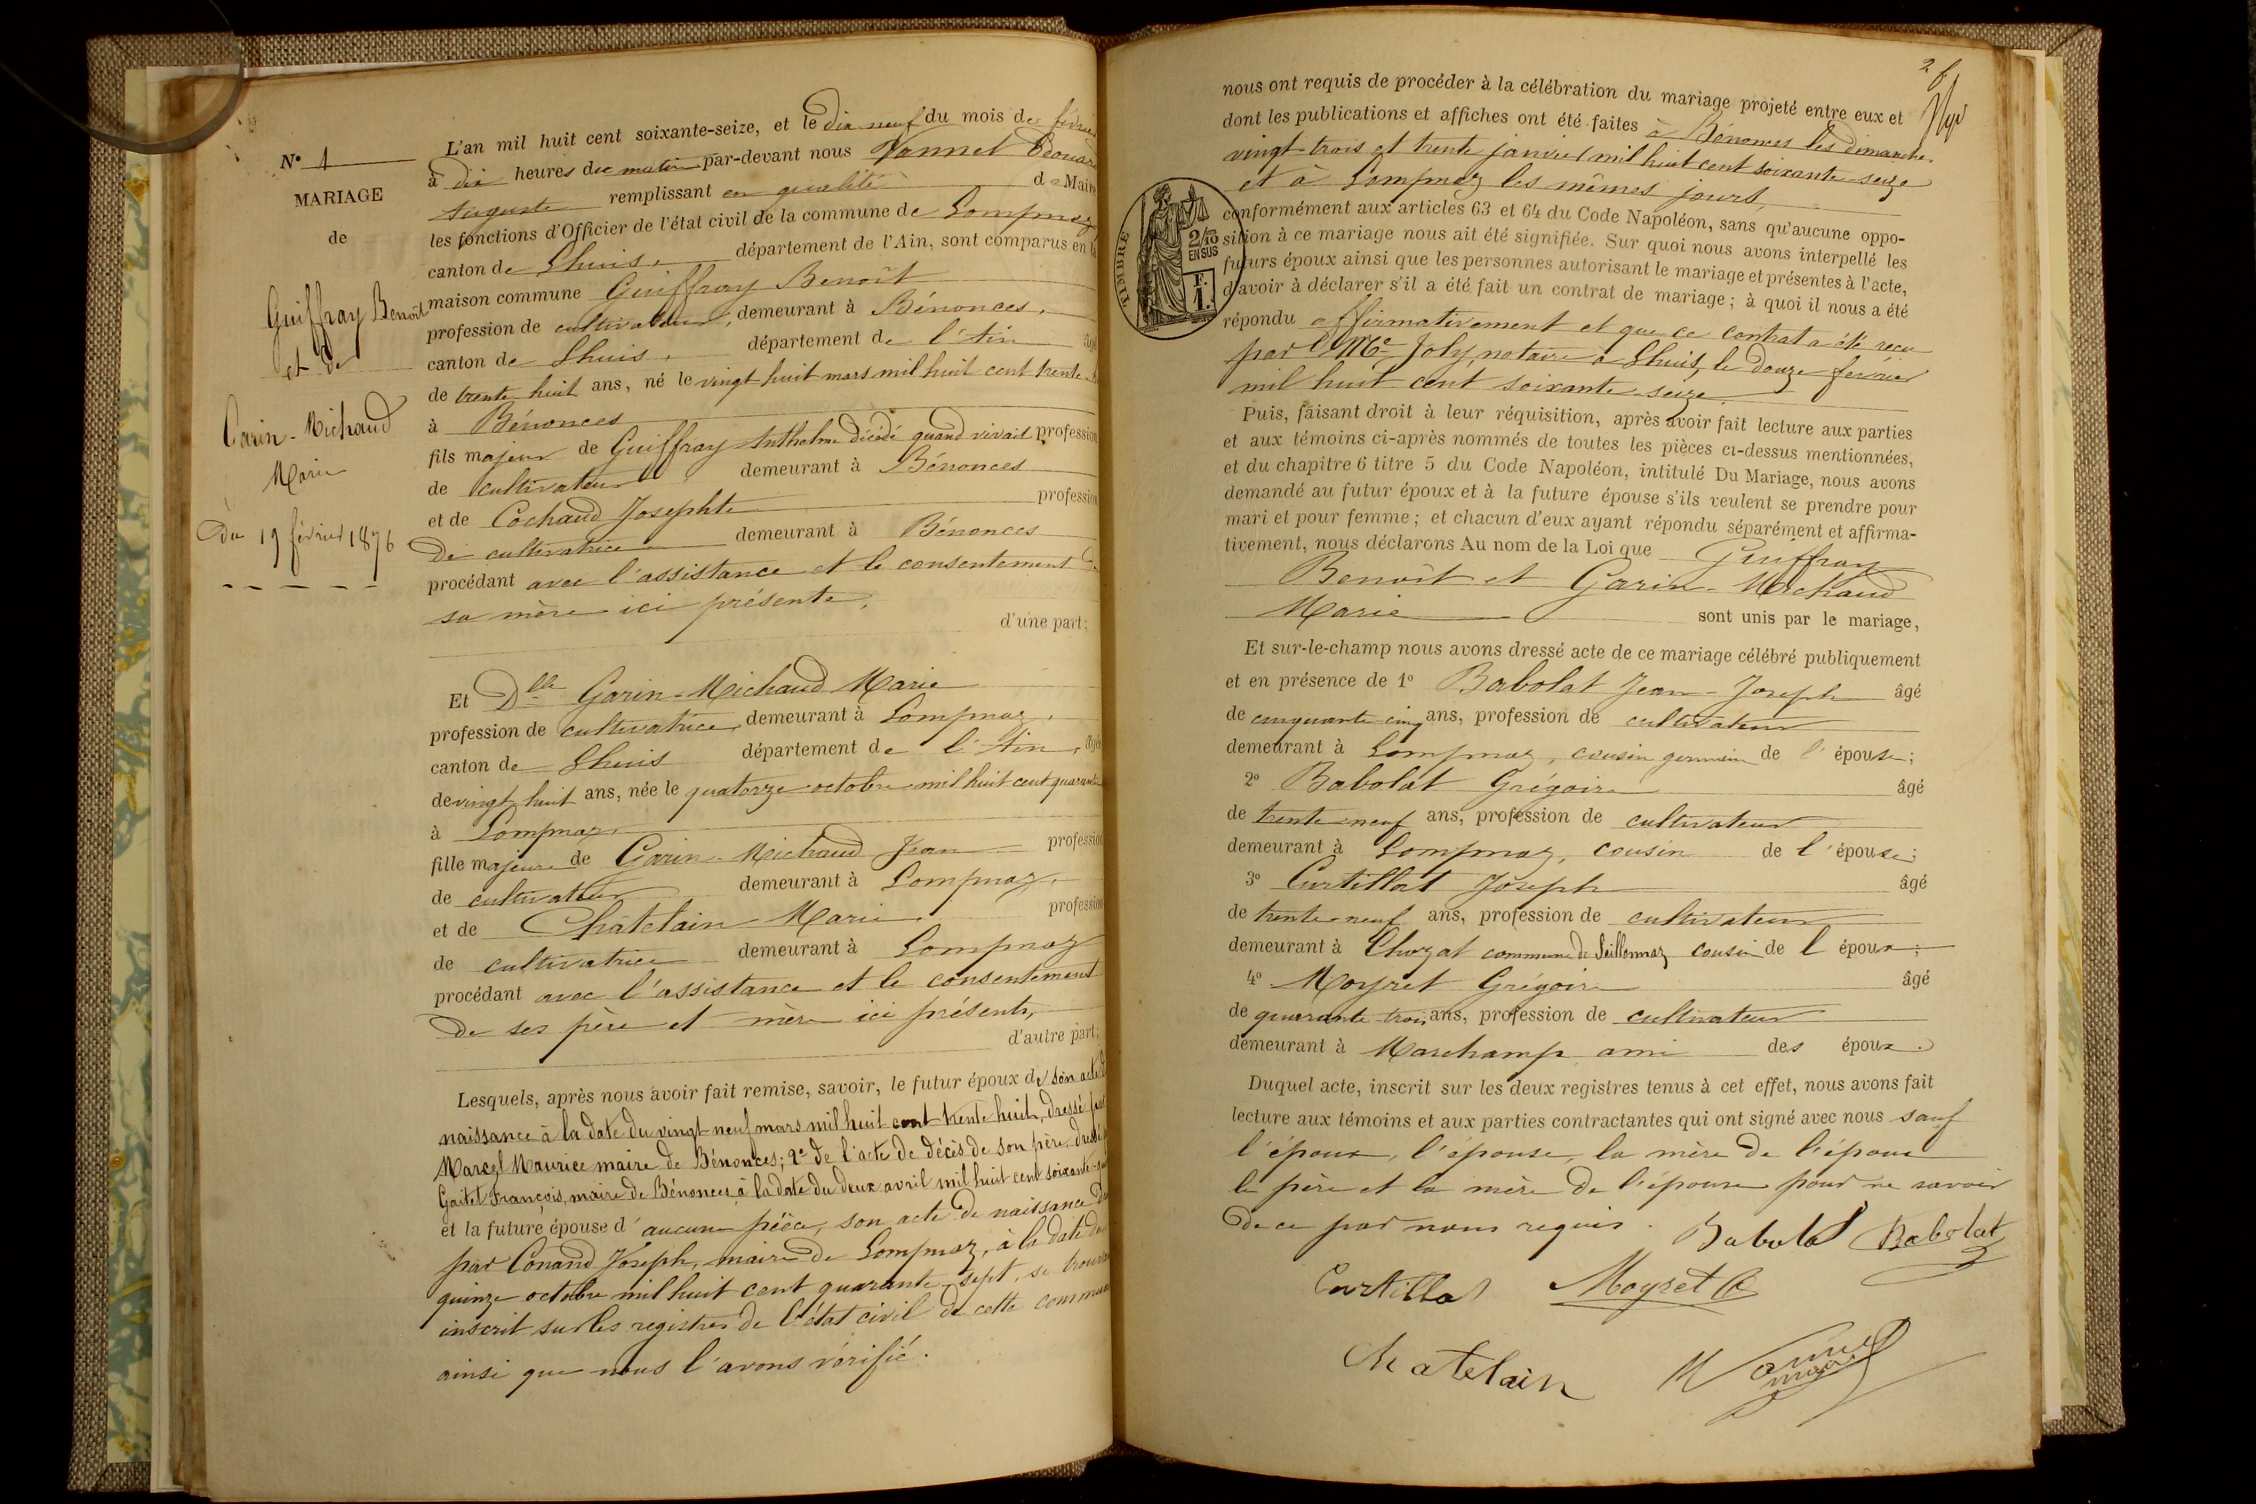 N° 1
MARIAGE
de
Guiffray Benoît
et de
Garin-Michaud
Marie
Du 19 février 1876
L'an mil huit cent soixante-seize, et le dix neuf du mois de février
à dix heures du matin par-devant nous Vannel Edouard
Auguste remplissant en qualité de Maire
les fonctions d'Officier de l'état civil de la commune de Lompnaz
canton de Lhuis, département de l'Ain, sont comparus en la
maison commune Guiffray Benoît
profession de cultivateur, demeurant à Bénonces,
canton de Lhuis, département de l'Ain âgé
de trente huit ans, né le vingt huit mars mil huit cent trente
à Bénonces
fils majeur de Guiffray Anthelme décédé quand vivait profession
de cultivateur demeurant à Bénonces
et de Cochaud Josephte profession
de cultivatrice demeurant à Bénonces
procédant avec l'assistance et le consentement de
sa mère ici présente,
d'une part;
Et Dlle Garin-Michaud Marie
profession de cultivatrice, demeurant à Lompnaz,
canton de Lhuis département de l'Ain, âgée
de vingt huit ans, née le quatorze octobre mil huit cent quarante
à Lompnaz
fille majeure de Garin-Michaud Jean profession
de cultivateur demeurant à Lompnaz,
et de Châtelain Marie profession
de cultivatrice demeurant à Lompnaz
procédant avec l'assistance et le consentement
de ses père et mère ici présents,
d'autre part;
Lesquels, après nous avoir fait remise, savoir, le futur époux de son acte de
naissance à la date du vingt neuf mars mil huit cent trente huit, dressé par
Marcel Maurice maire de Bénonces; 2° de l'acte de décès de son père, dressé
Gaitet François, maire de Bénonces, à la date du deux avril mil huit cent soixante
et la future épouse d'aucune pièce, son acte de naissance
par Conand Joseph, maire de Lompnaz, à la date du
quinze octobre mil huit cent quarante-sept, se trouvant
inscrit sur les registres de l'état civil de cette commune
ainsi que nous l'avons vérifié.
2
TIMBRE
2/10
EN SUS
F.
1.
nous ont requis de procéder à la célébration du mariage projeté entre eux et
dont les publications et affiches ont été faites à Bénonces les dimanches
vingt-trois et trente janvier mil huit cent soixante-seize
et à Lompnaz les mêmes jours,
conformément aux articles 63 et 64 du Code Napoléon, sans qu'aucune oppo-
sition à ce mariage nous ait été signifiée. Sur quoi nous avons interpellé les
futurs époux ainsi que les personnes autorisant le mariage et présentes à l'acte,
d'avoir à déclarer s'il a été fait un contrat de mariage; à quoi il nous a été
répondu affirmativement et que ce contrat a été reçu
par Me Joly, notaire à Lhuis, le douze février
mil huit cent soixante-seize.
Puis, faisant droit à leur réquisition, après avoir fait lecture aux parties
et aux témoins ci-après nommés de toutes les pièces ci-dessus mentionnées,
et du chapitre 6 titre 5 du Code Napoléon, intitulé Du Mariage, nous avons
demandé au futur époux et à la future épouse s'ils veulent se prendre pour
mari et pour femme; et chacun d'eux ayant répondu séparément et affirma-
tivement, nous déclarons Au nom de la Loi que Guiffray
Benoît et Garin-Michaud
Marie sont unis par le mariage,
Et sur-le-champ nous avons dressé acte de ce mariage célébré publiquement
et en présence de 1° Babolat Jean-Joseph âgé
de cinquante cinq ans, profession de cultivateur
demeurant à Lompnaz, cousin germain de l'épouse;
2° Babolat Grégoire âgé
de trente-neuf ans, profession de cultivateur
demeurant à Lompnaz, cousin de l'épouse;
3° Curtillat Joseph âgé
de trente-neuf ans, profession de cultivateur
demeurant à Chozat commune de Seillonnaz cousin de l époux;
4° Moyret Grégoire âgé
de quarante trois ans, profession de cultivateur
demeurant à Marchamp ami des époux.
Duquel acte, inscrit sur les deux registres tenus à cet effet, nous avons fait
lecture aux témoins et aux parties contractantes qui ont signé avec nous sauf
l'époux, l'épouse, la mère de l'époux
le père et la mère de l'épouse pour ne savoir
de ce par nous requis. Babolat Babolat
Curtillat Moyret G
Chatelain Vannel